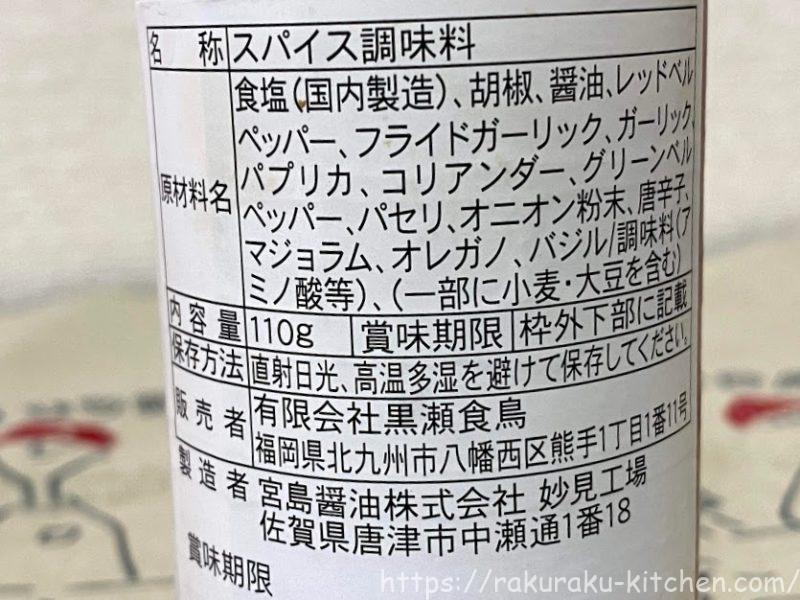 名称 スパイス調味料
原材料名 食塩(国内製造)、胡椒、醤油、レッドベル
ペッパー、フライドガーリック、ガーリック、
パプリカ、コリアンダー、グリーンベル
ペッパー、パセリ、オニオン粉末、唐辛子、
マジョラム、オレガノ、バジル/調味料(ア
ミノ酸等)、(一部に小麦・大豆を含む)
内容量 110g 賞味期限 枠外下部に記載
保存方法 直射日光、高温多湿を避けて保存してください。
販売者 有限会社黒瀬食鳥
福岡県北九州市八幡西区熊手1丁目1番11号
製造者 宮島醤油株式会社 妙見工場
佐賀県唐津市中瀬通1番18
賞味期限
https://rakuraku-kitchen.com/